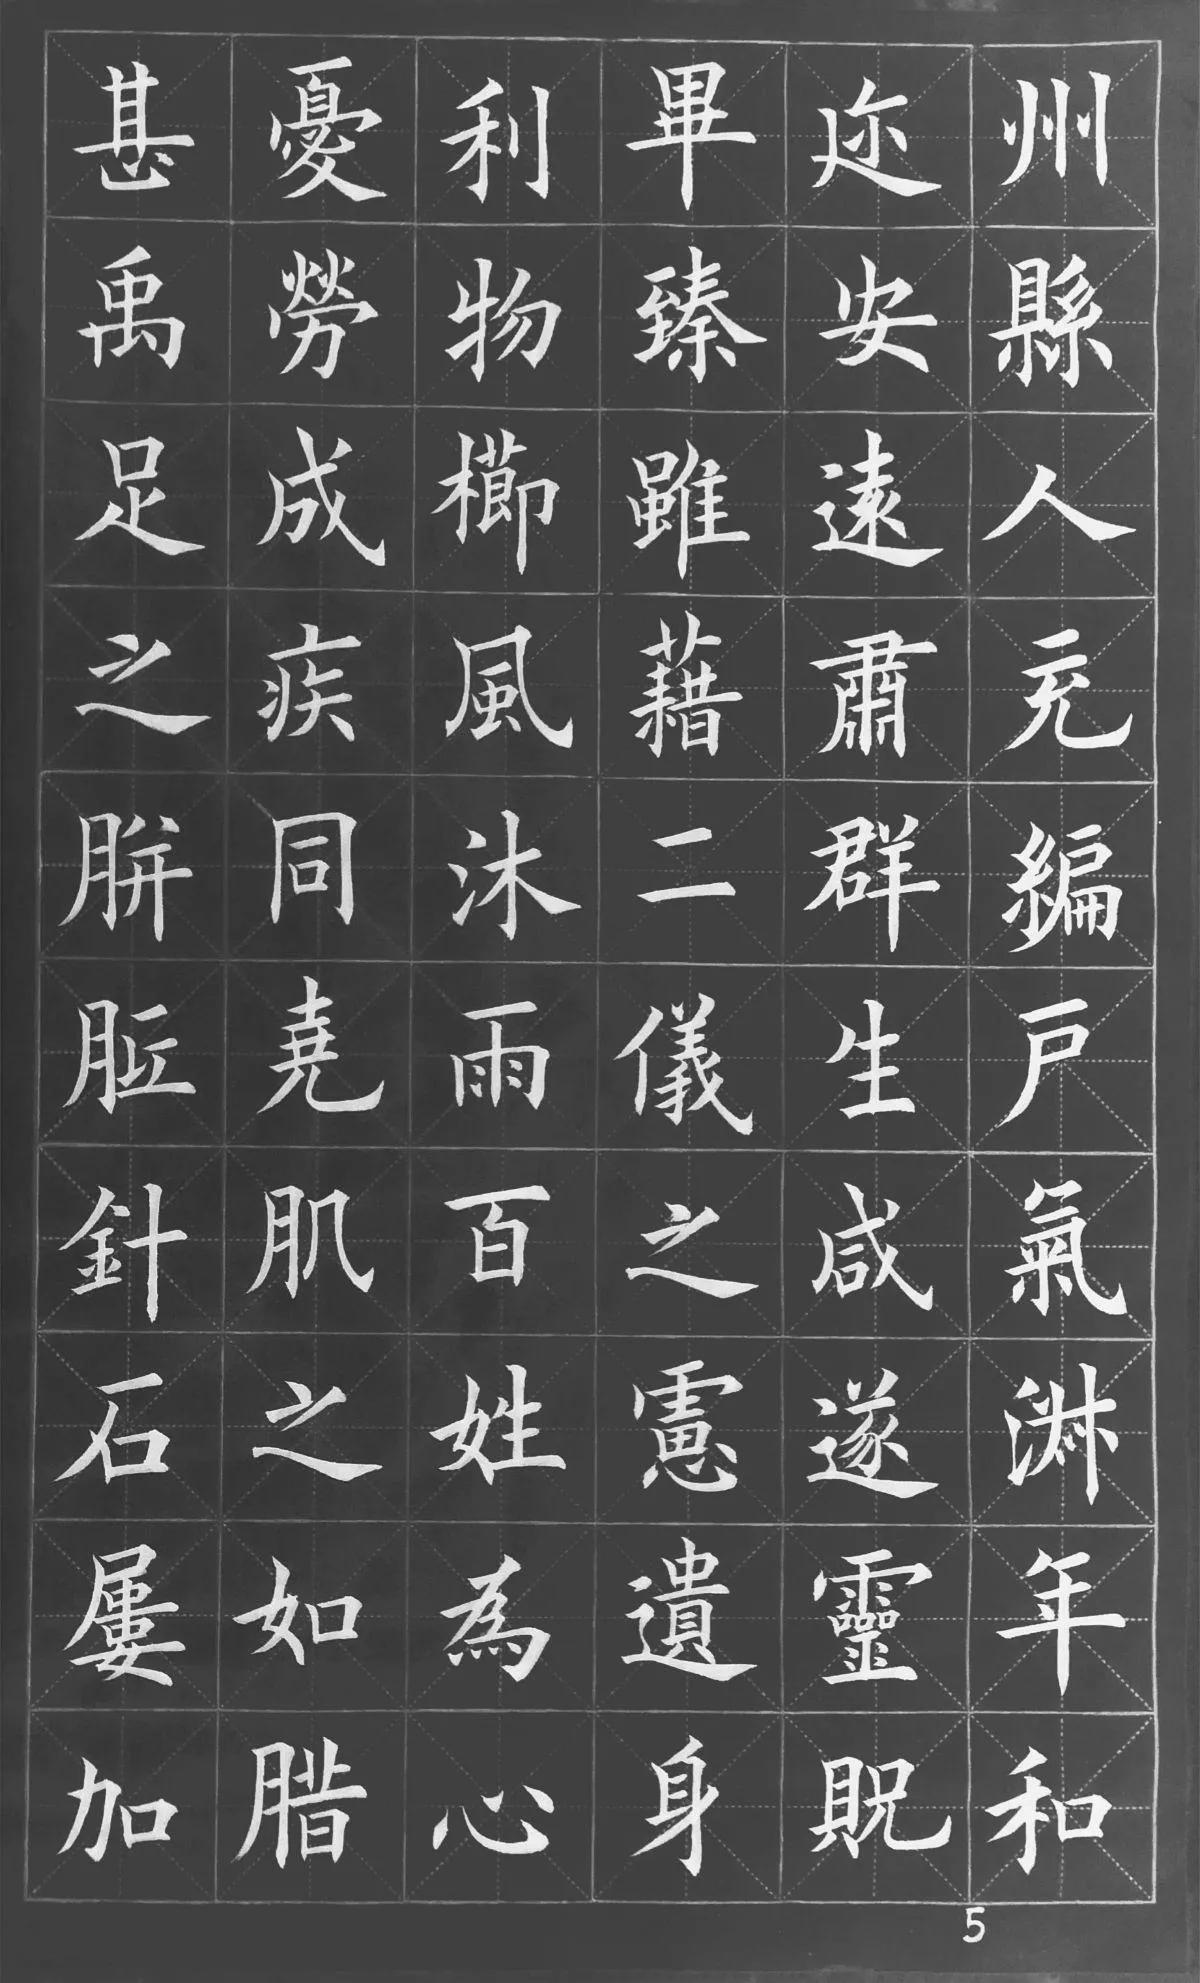 州縣人充編戶氣淋年和
迩安遠肅群生咸遂靈貺
畢臻雖藉二儀之慮遺身
利物櫛風沐雨百姓為心
憂勞成疾同堯肌之如腊
甚禹足之胼胝針石屢加
5